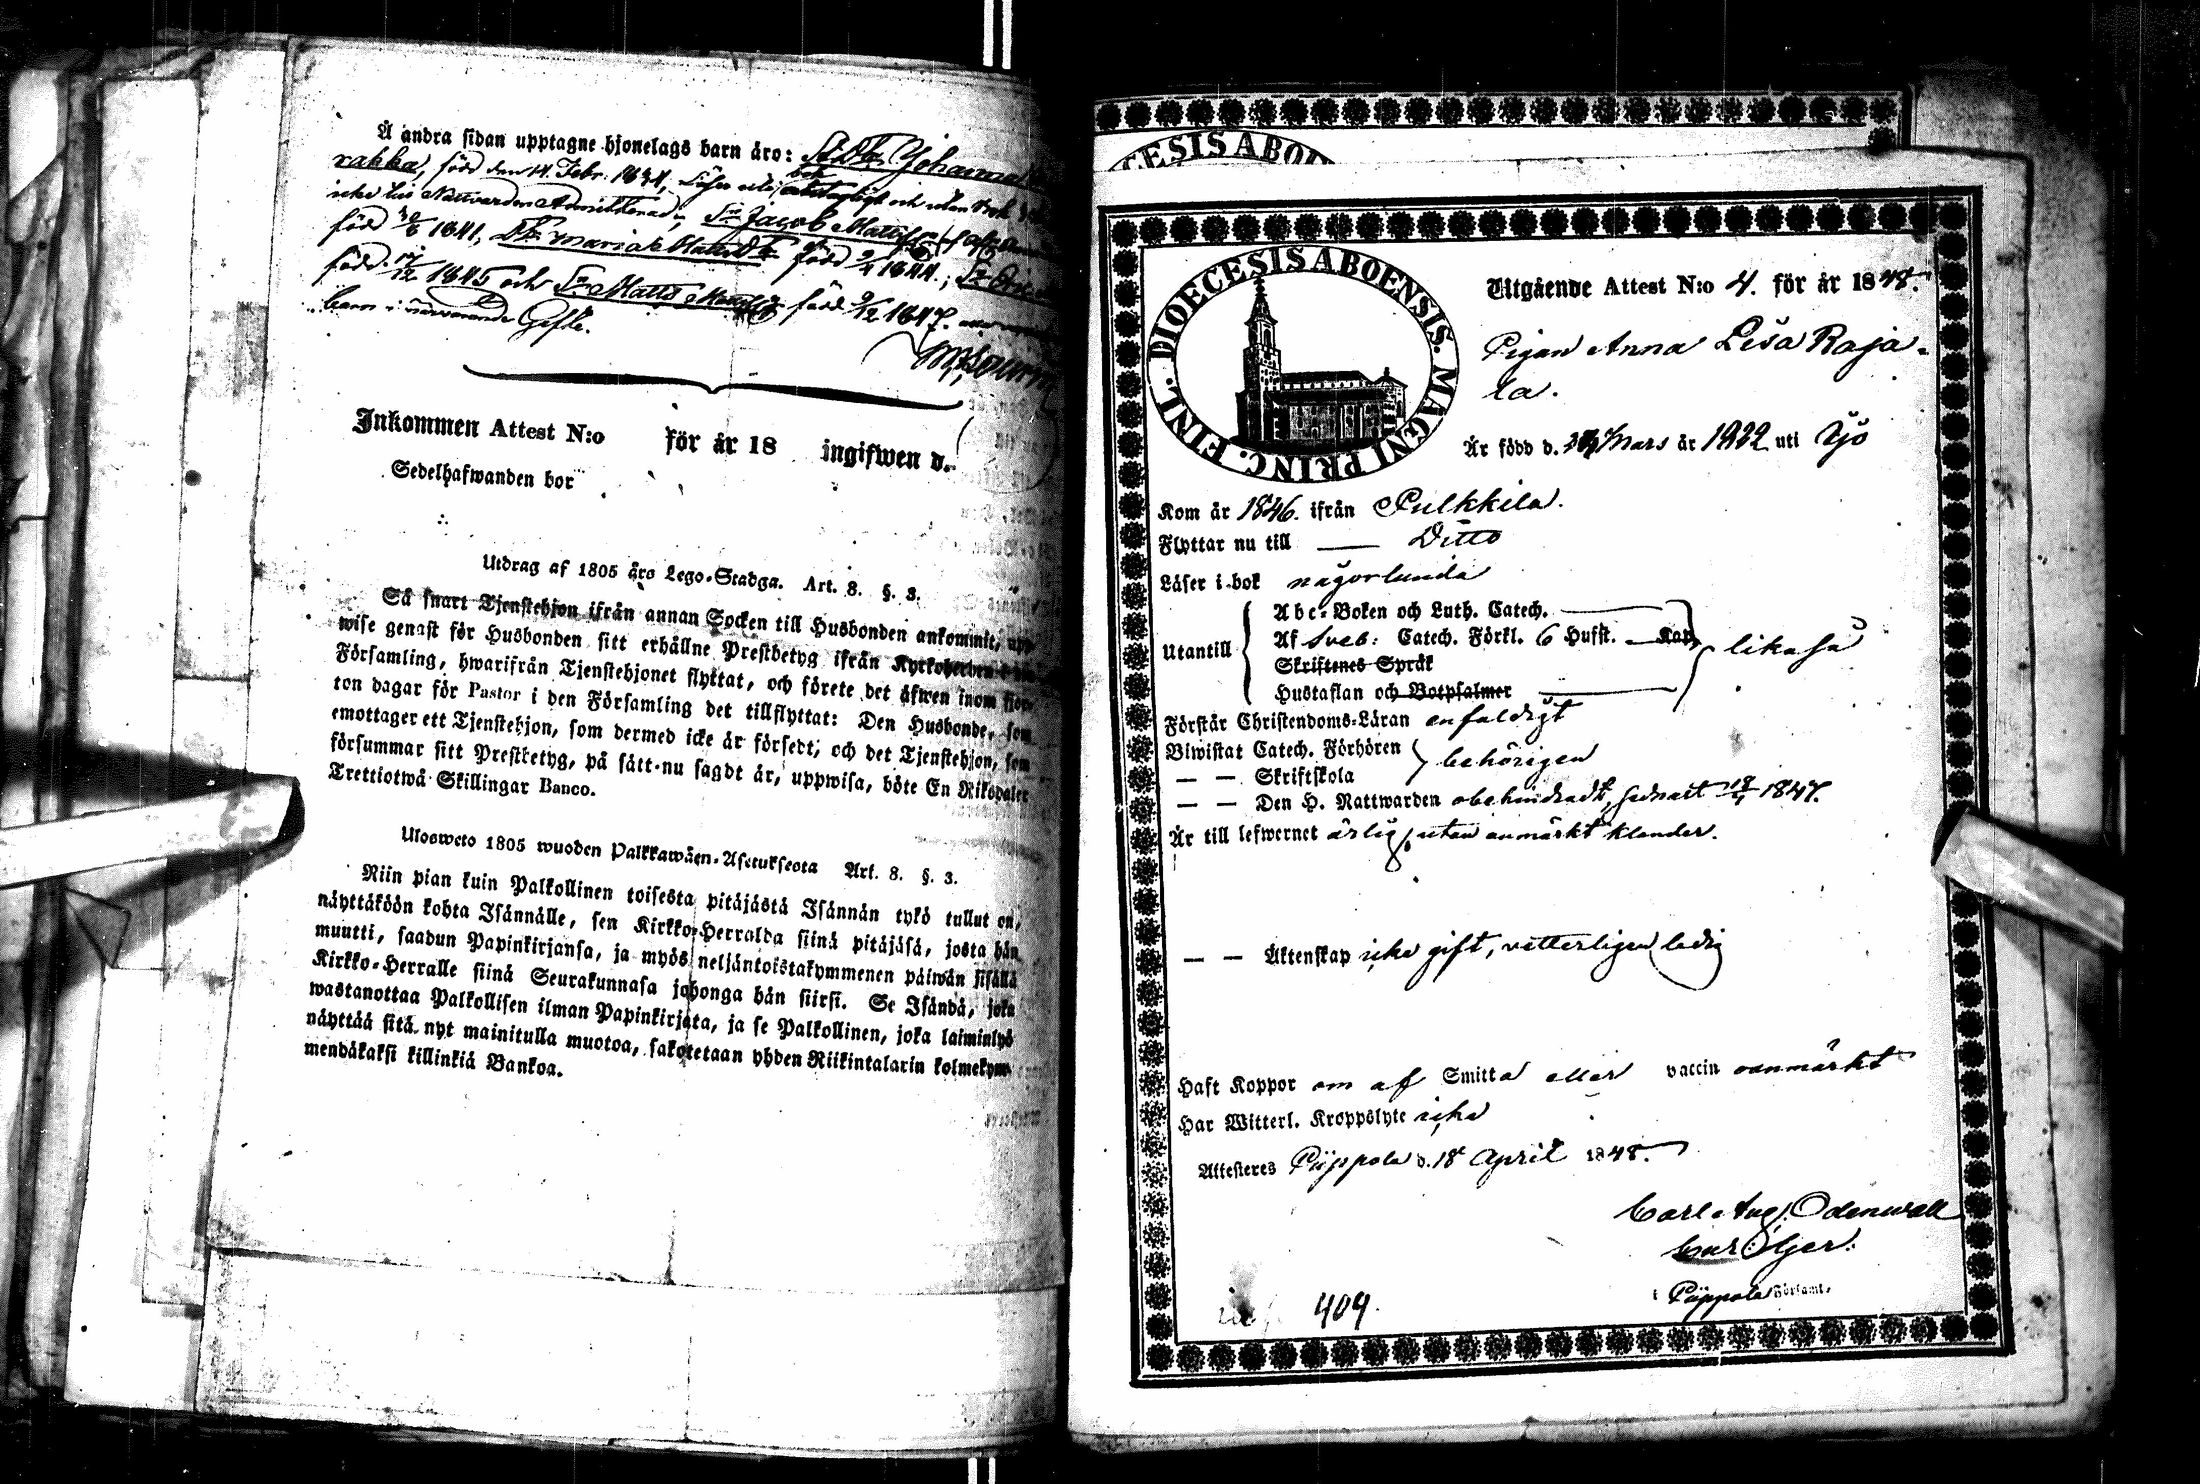 Å andra sidan upptagne hjonelags barn äro: Johanna
rakka, född den 14 Febr. 1834, och utan Bok
icke till Nattvarden Admitterad; Jacob
född 1841, Maria född 1844;
född 1845 och Matts född 1847.
barn i närvarande Gifte.
Inkommen Attest N:o för år 18 ingifwen d.
Sedelhafwanden bor
Utdrag af 1805 års Lego-Stadga. Art. 8. §. 3.
Så snart Tjenstehjon ifrån annan Socken till Husbonden ankommit, upp-
wise genast för Husbonden sitt erhållne Prestbetyg ifrån Kyrkoherden
Församling, hwarifrån Tjenstehjonet flyttat, och förete det äfwen inom fjor-
ton dagar för Pastor i den Församling det tillflyttat: Den Husbonde, som
emottager ett Tjenstehjon, som dermed icke är försedt, och det Tjenstehjon, som
försummar sitt Prestbetyg, på sätt nu sagdt är, uppwisa, böte En Riksdaler
Trettiotwå Skillingar Banco.
Ulosweto 1805 wuoden Palkkawäen-Asetuksesta Art. 8. §. 3.
Niin pian kuin Palkollinen toisesta pitäjästä Isännän tykö tullut on,
näyttäköön kohta Isännälle, sen Kirkko-Herralda siinä pitäjäsä, josta hän
muutti, saadun Papinkirjansa, ja myös neljäntoistakymmenen päiwän sisällä
Kirkko-Herralle siinä Seurakunnasa johonga hän siirsi. Se Isändä, joka
wastanottaa Palkollisen ilman Papinkirjata, ja se Palkollinen, joka laiminlyö
näyttää sitä nyt mainitulla muotoa, sakotetaan yhden Riikintalarin kolmekym-
mendäkaksi killinkiä Bankoa.
DIOECESIS ABOENSIS. MAGNI PRINC. FINL.
Utgående Attest N:o 4. för år 1848.
Pigan Anna Lisa Raja-
la.
Är född d. Mars år 1822 uti
Kom år 1846. ifrån Pulkkila.
Flyttar nu till — Ditto
Läser i bok någorlunda
Utantill
Abc-Boken och Luth. Catech.
Af Sveb: Catech. Förkl. 6 Hufst. Kap.
Skriftenes Språk
Hustaflan och Botpsalmer
likaså
Förstår Christendoms-Läran enfaldigt
Biwistat Catech. Förhören
— — Skriftskola
behörigen
— — Den H. Nattwarden obehindradt, senast 1847.
Är till lefwernet ärlig, utan anmärkt klander.
— — Äktenskap icke gift, vetterligen ledig
Haft Koppor om af Smitta eller vaccin oanmärkt
Har Witterl. Kroppslyte icke
Attesteres Piippola d. 18 April 1848.
Carl Aug. Odenwall
i Piippola Församl.
404.